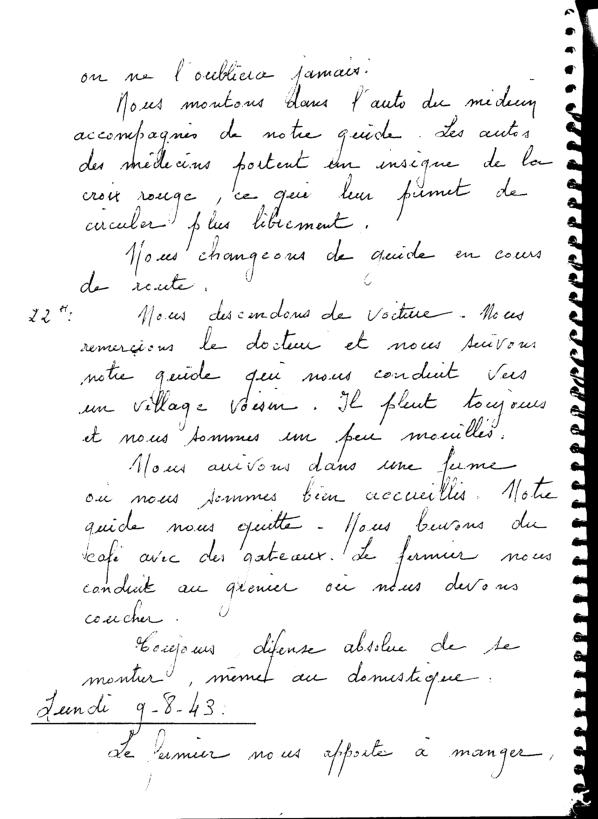 on ne l'oubliera jamais.
Nous montons dans l'auto du médecin
accompagnés de notre guide. Les autos
des médecins portent un insigne de la
croix rouge, ce qui leur permet de
circuler plus librement.
Nous changeons de guide en cours
de route.
22 H: Nous descendons de voiture. Nous
remercions le docteur et nous suivons
notre guide qui nous conduit vers
un village voisin. Il pleut toujours
et nous sommes un peu mouillés.
Nous arrivons dans une ferme
où nous sommes bien accueillis. Notre
guide nous quitte. Nous buvons du
café avec des gateaux. Le fermier nous
conduit au grenier où nous devons
coucher.
Toujours défense absolue de se
montrer, même au domestique.
Lundi 9-8-43:
Le fermier nous apporte à manger,